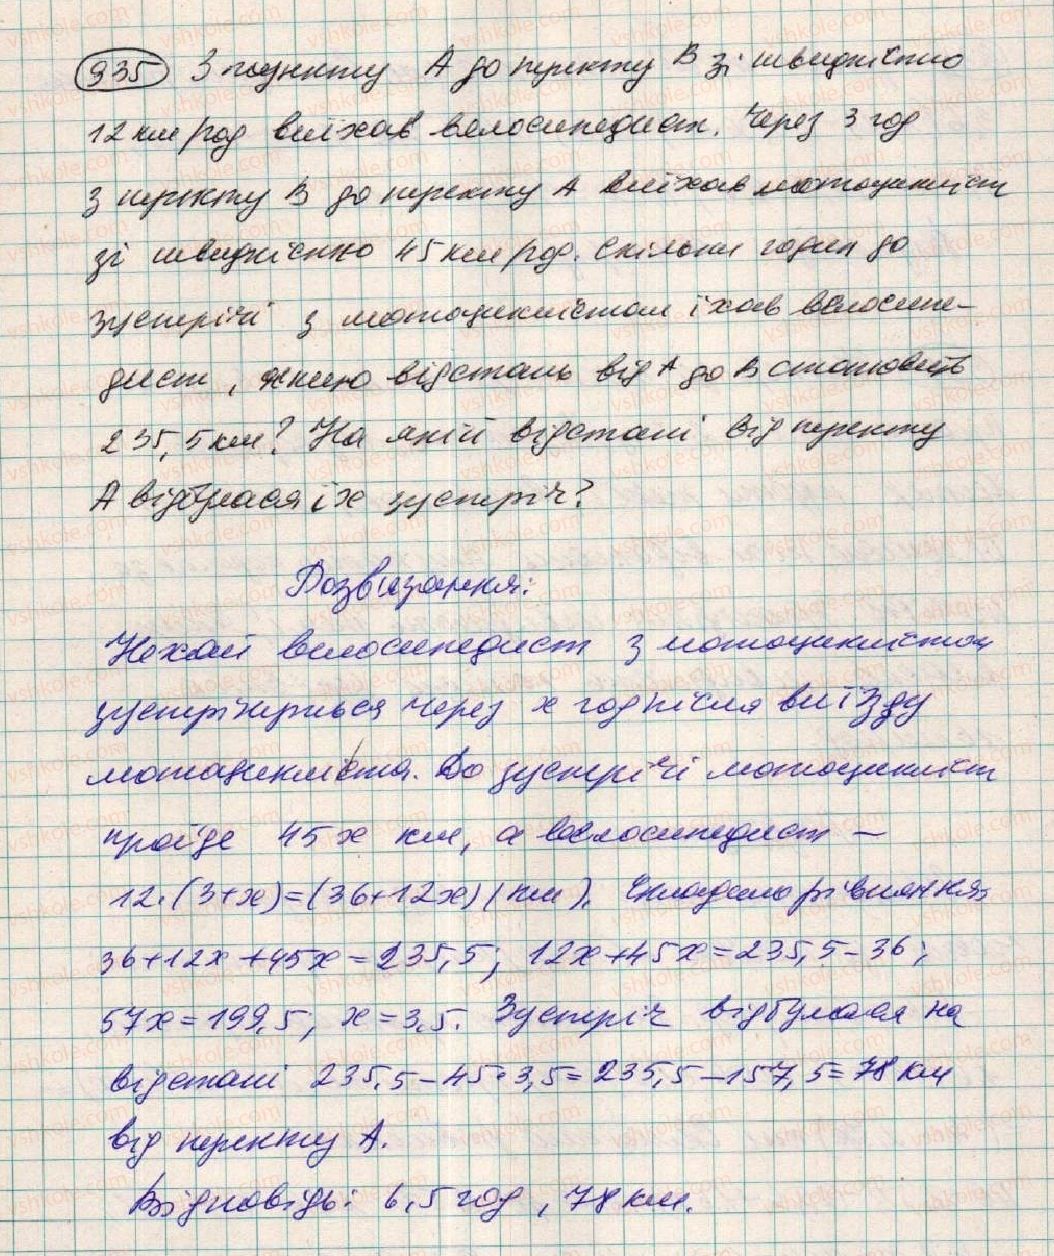 935 З пункту А до пункту В зі швидкістю
12 км/год виїхав велосипедист. Через 3 год
з пункту В до пункту А виїхав мотоцикліст
зі швидкістю 45 км/год. Скільки годин до
зустрічі з мотоциклістом їхав велосипе-
дист, якщо відстань від А до В становить
235,5 км? На якій відстані від пункту
А відбулася їх зустріч?
Розв'язання:
Нехай велосипедист з мотоциклістом
зустрінуться через x год після виїзду
мотоцикліста. До зустрічі мотоцикліст
пройде 45x км, а велосипедист –
12·(3+x)=(36+12x) (км). Складемо рівняння:
36+12x+45x=235,5; 12x+45x=235,5–36;
57x=199,5; x=3,5. Зустріч відбулася на
відстані 235,5–45·3,5=235,5–157,5=78 км
від пункту А.
Відповідь: 6,5 год, 78 км.